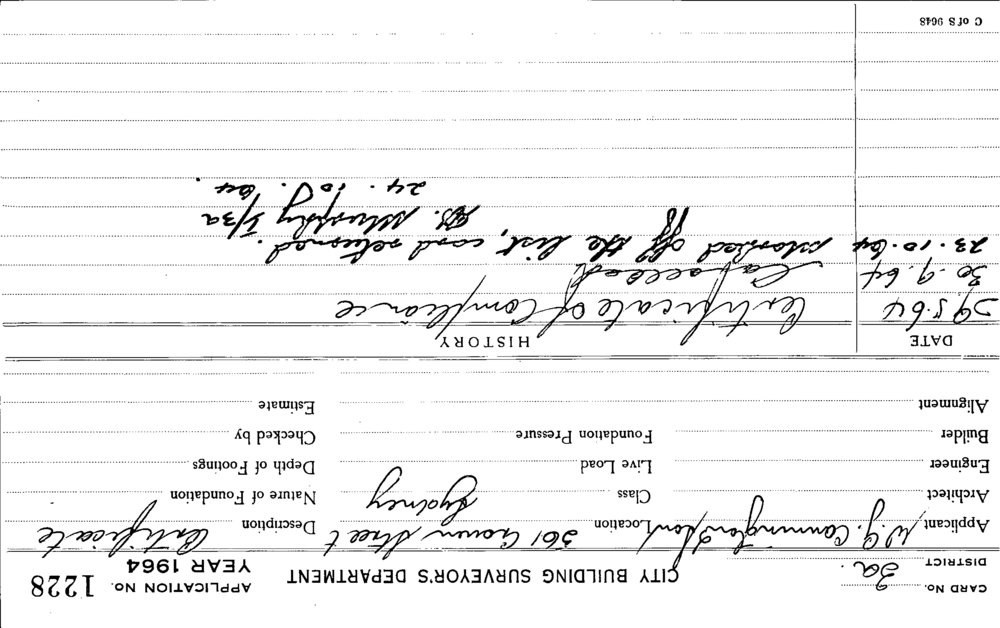 CARD NO. APPLICATION No. 1228
DISTRICT 3a. CITY BUILDING SURVEYOR'S DEPARTMENT YEAR 1964
Applicant W.J. Location 361 Street Description Certificate
Architect Class Sydney Nature of Foundation
Engineer Live Load Depth of Footings
Builder Foundation Pressure Checked by
Alignment Estimate
DATE HISTORY
29.5.64 Certificate of Compliance
30.9.64
23.10.64 Marked off the list, card returned.
Murphy I/3a
24.10.64.
C of S 9648